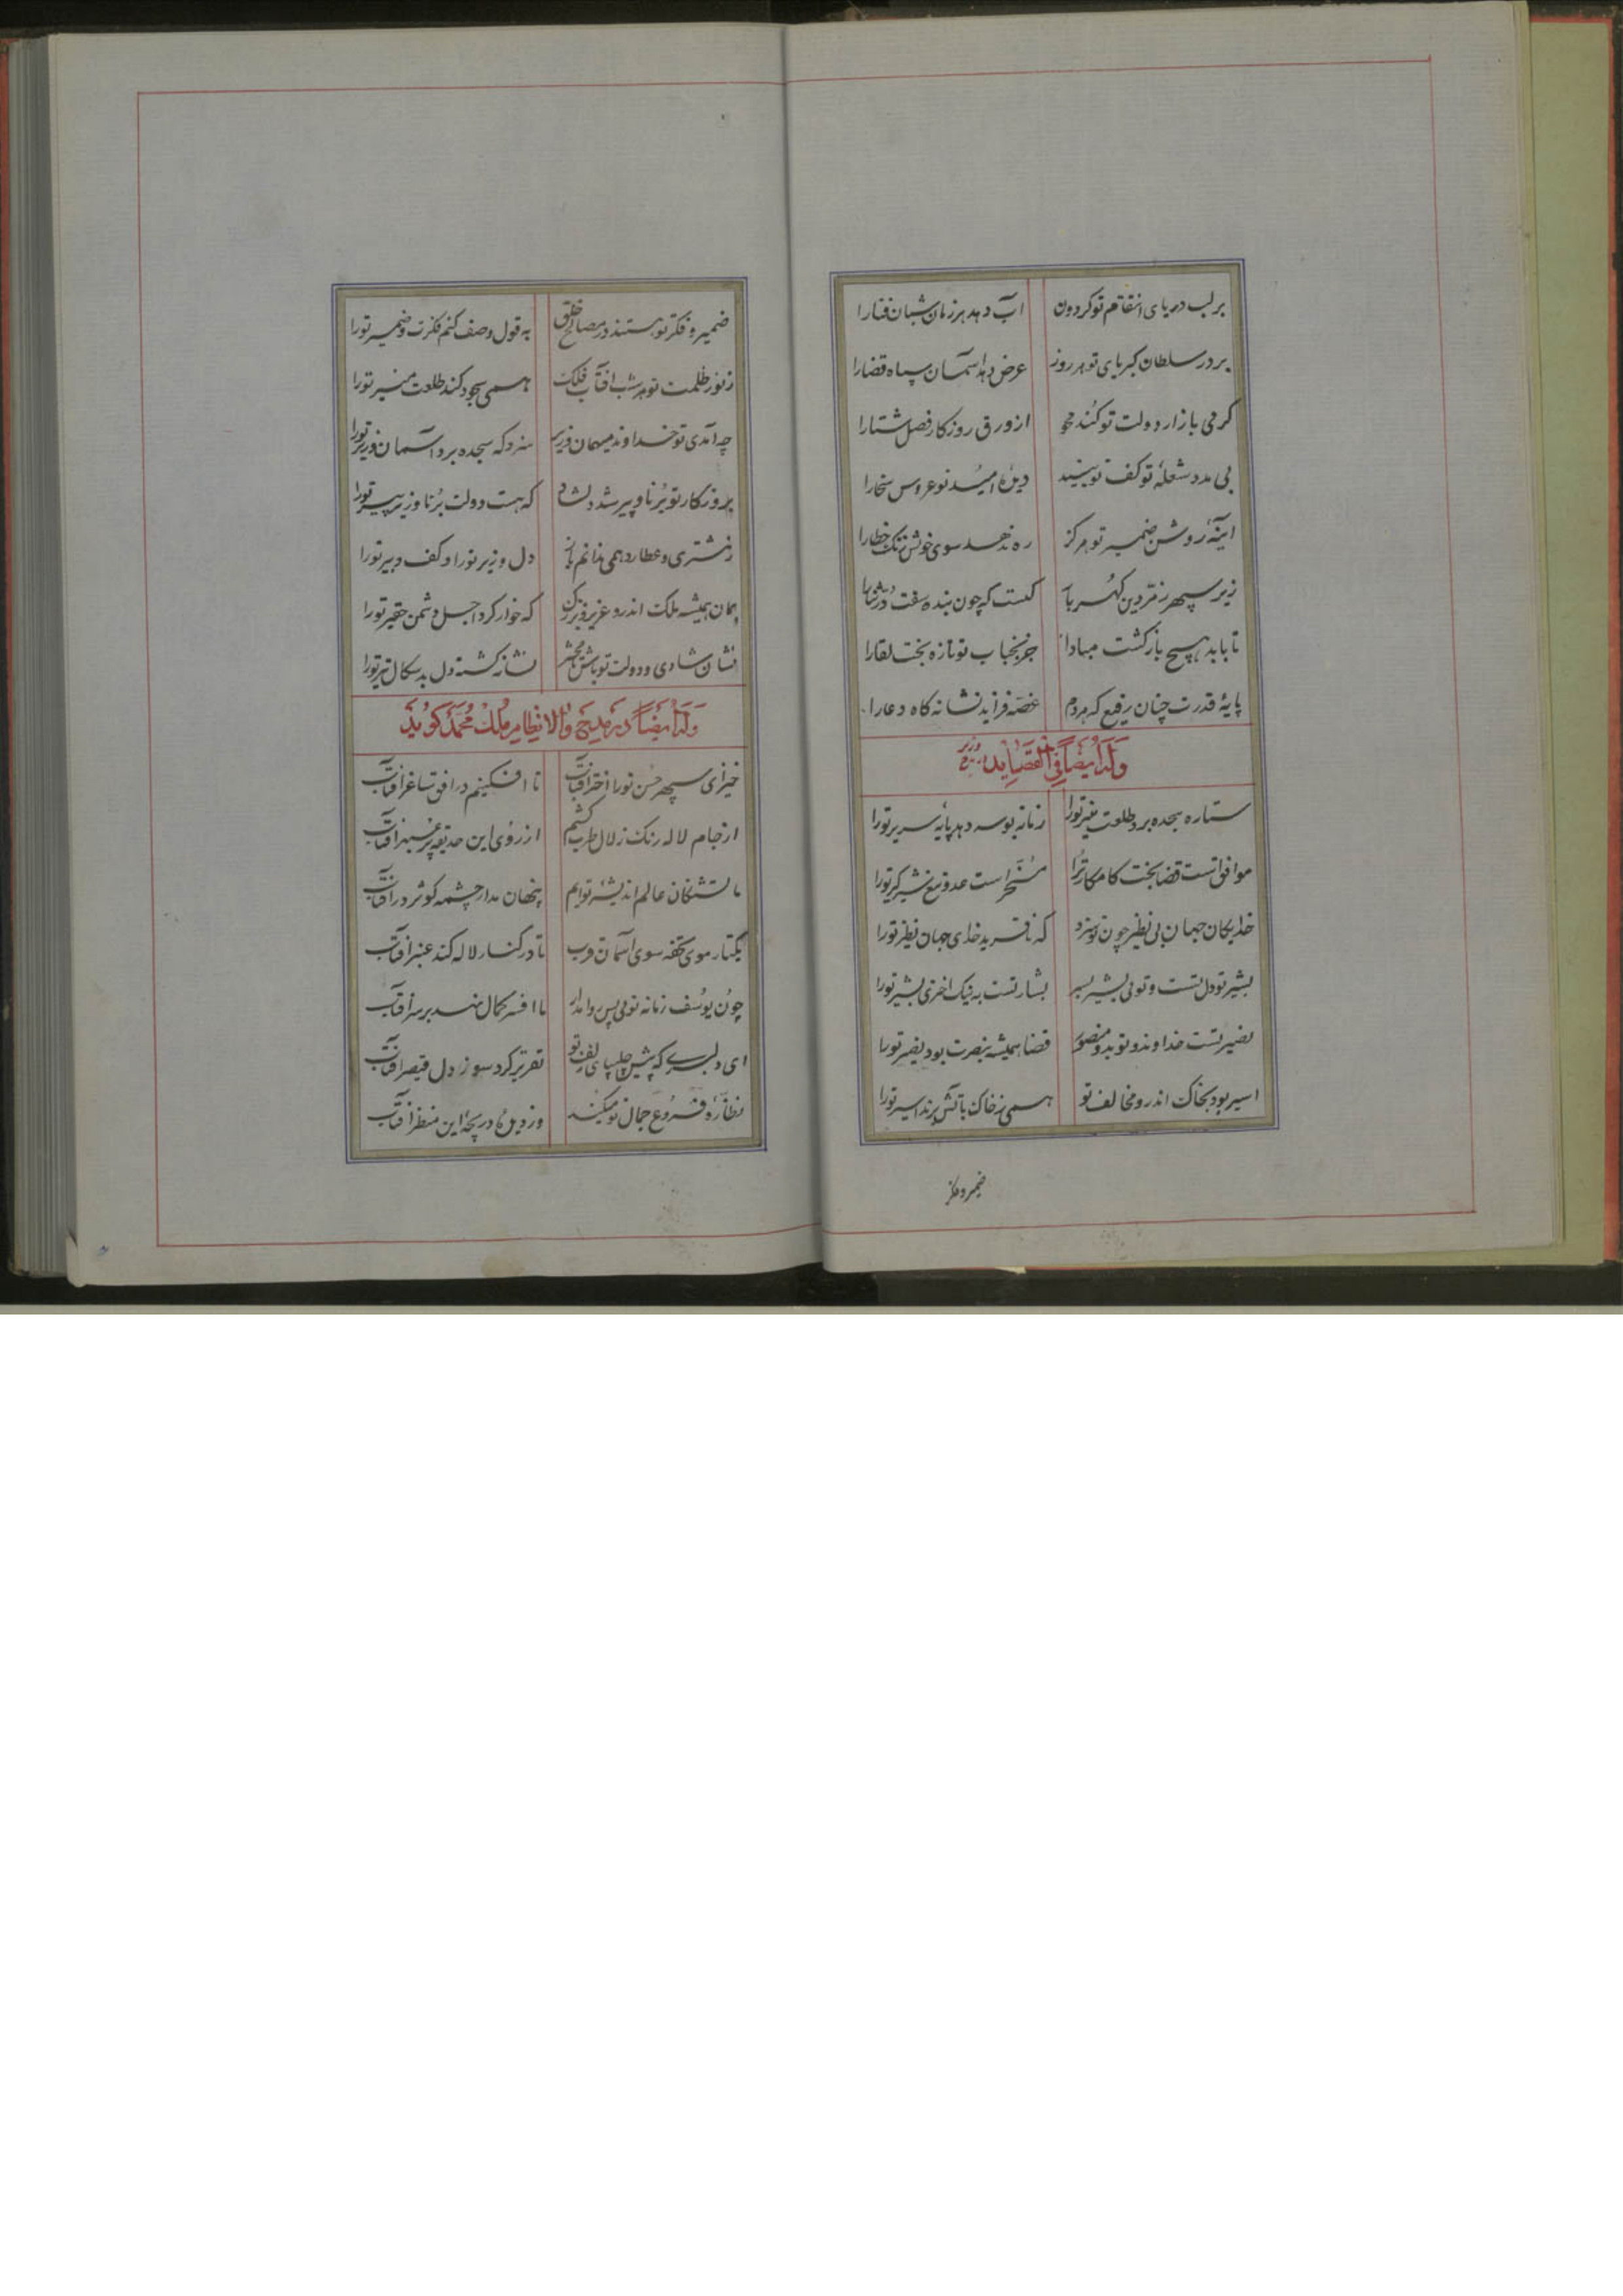 برلب دریای انتقام تو کردون اب دهد هر زمان شبان فنارا
بر در سلطان کبریای تو هر روز عرض دهد اسمان سپاه قضارا
کرمی بازار دولت تو کند محو از ورق روزکار فصل شتارا
بی مدد شعلهٔ تو کف تو نبیند دیدهٔ امید نو عروس سخارا
اینهٔ روشن ضمیر تو هرکز ره ندهد سوی خویش زنک خطارا
زیر سپهر زمردین کهربا کیست که چون بنده سفت در ثنارا
تا بابد هیچ بازکشت مبادا جز بجناب تو تازه بخت لقارا
پایهٔ قدرت چنان رفیع که مردم غصه فزاید نشانه کاه دعارا
وله ایضاً فی القصاید
ستاره سجده برد طلعت منیر تورا زمانه بوسه دهد پایه سریر تورا
موافق است قضا بخت کامکار ترا مسخر است عدو تیغ شیرکیر تورا
خدایکان جهان بی نظیر چون تو سزد که نافرید خدای جهان نظیر تورا
بشیر تو دل تست و توئی بشیر بشر بشارتست به نیک اختری بشیر تورا
نصیر تست خداوند و تو بدو منصور قضا همیشه بنصرت بود نصیر تورا
اسیر بود بخاک اندرو مخالف تو همی زخاک باتش برند اسیر تورا
ضمیر و فکر
ضمیر و فکر تو هستند در مصالح خلق به قول وصف کنم فکرت و ضمیر تورا
ز نور طلعت تو هر شب افتاب فلک همی سجود کند طلعت منیر تورا
چه آمدی تو خداوند میهمان وزیر سزد که سجده برد آسمان وزیر تورا
بروزکار تو برنا و پیر شد دلشاد که هست دولت برنا وزیر پیر تورا
ز مشتری و عطارد همی ندانم باز دل وزیر تورا و کف دبیر تورا
بمان همیشه بملک اندرو عزیز و بزرک که خوار کرد اجل دشمن حقیر تورا
نشان شادی و دولت تو باش تا محشر نشانه کشته دل بدسکال تیر تورا
وله ایضاً در مدیح والا نظام ملک محمد کوید
خیز ای سپهر حسن تورا اختر افتاب تا افکنیم در افق ساغر افتاب
از جام لاله رنک زلال طرب کشیم از روی این حدیقه پر عبهر افتاب
ما تشنکان عالم اندیشهٔ توایم پنهان مدار چشمه کوثر در افتاب
یکتار موی تحفه سوی آسمان فرست تا در کنار لاله کند عنبر افتاب
چون یوسف زمانه توئی پس روا مدار با افسر کمال نهد بر سر افتاب
ای دلبری که پیش چلیپای زلف تو تقریر کرد سوز دل قیصر افتاب
نظاره فروغ جمال تو میکند وز دیدهٔ دریچهٔ این منظر افتاب